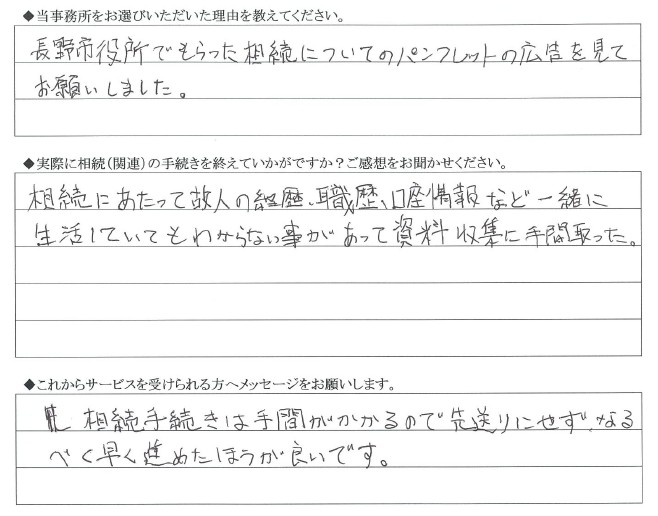 ◆当事務所をお選びいただいた理由を教えてください。
長野市役所でもらった相続についてのパンフレットの広告を見て
お願いしました。
◆実際に相続(関連)の手続きを終えていかがですか?ご感想をお聞かせください。
相続にあたって故人の経歴、職歴、口座情報など一緒に
生活していてもわからない事があって資料収集に手間取った。
◆これからサービスを受けられる方へメッセージをお願いします。
相続手続きは手間がかかるので先送りにせず、なる
べく早く進めたほうが良いです。